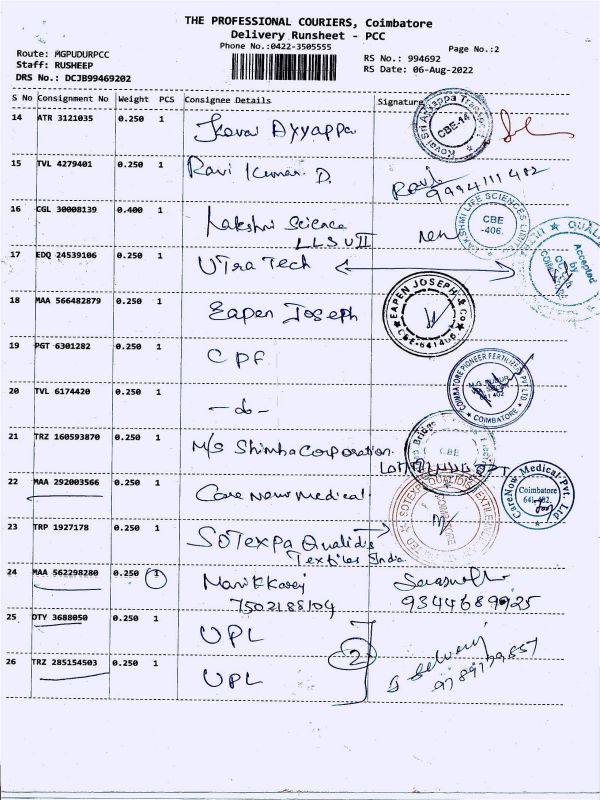 THE PROFESSIONAL COURIERS, Coimbatore
Delivery Runsheet - PCC
Phone No.:0422-3505555
Page No.:2
Route: MGPUDURPCC
Staff: RUSHEEP
DRS No.: DCJB99469202
RS No.: 994692
RS Date: 06-Aug-2022
S No Consignment No Weight PCS Consignee Details Signature
14 ATR 3121035 0.250 1 Kovai Ayyappa
Kovai Sri Ayyappa Transport CBE-14
15 TVL 4279401 0.250 1 Ravi Kumar D. Ravi
9994111402
16 CGL 30008139 0.400 1 Lakshmi Science
LLSUII
LAKSHMI LIFE SCIENCES LIMITED CBE -406.
17 EDQ 24539106 0.250 1 UTra Tech
Accepted by
18 MAA 566482879 0.250 1 Eapen Joseph
EAPEN JOSEPH & Co CBE-641406
19 PGT 6301282 0.250 1 CPF
COIMBATORE PIONEER FERTILIZERS PVT LTD COIMBATORE
20 TVL 6174420 0.250 1 -do-
21 TRZ 160593870 0.250 1 M/s Shimha Corporation
CBE
22 MAA 292003566 0.250 1 Care now medical
CareNow Medical Pvt. Ltd Coimbatore 641 402.
23 TRP 1927178 0.250 1 SOTexpa Qualidis
Textiles India
24 MAA 562298280 0.250 1 Manikkaraj
7502188104
9344689925
25 OTY 3688050 0.250 1 UPL
2
26 TRZ 285154503 0.250 1 UPL